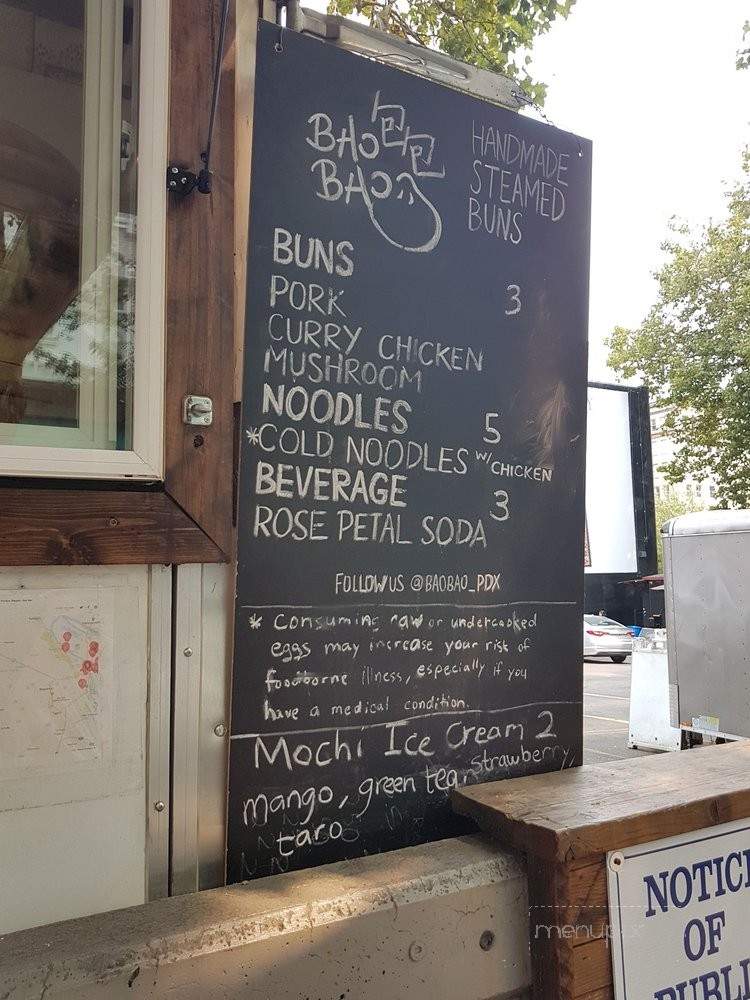 BAO 包包
BAO
HANDMADE
STEAMED
BUNS
BUNS
PORK 3
CURRY CHICKEN
MUSHROOM
NOODLES 5
*COLD NOODLES W/CHICKEN
BEVERAGE 3
ROSE PETAL SODA
FOLLOW US @BAOBAO_PDX
* Consuming raw or undercooked
eggs may increase your risk of
foodborne illness, especially if you
have a medical condition.
Mochi Ice Cream 2
mango, green tea, strawberry,
taro
NOTICE
OF
PUBLI
menupix